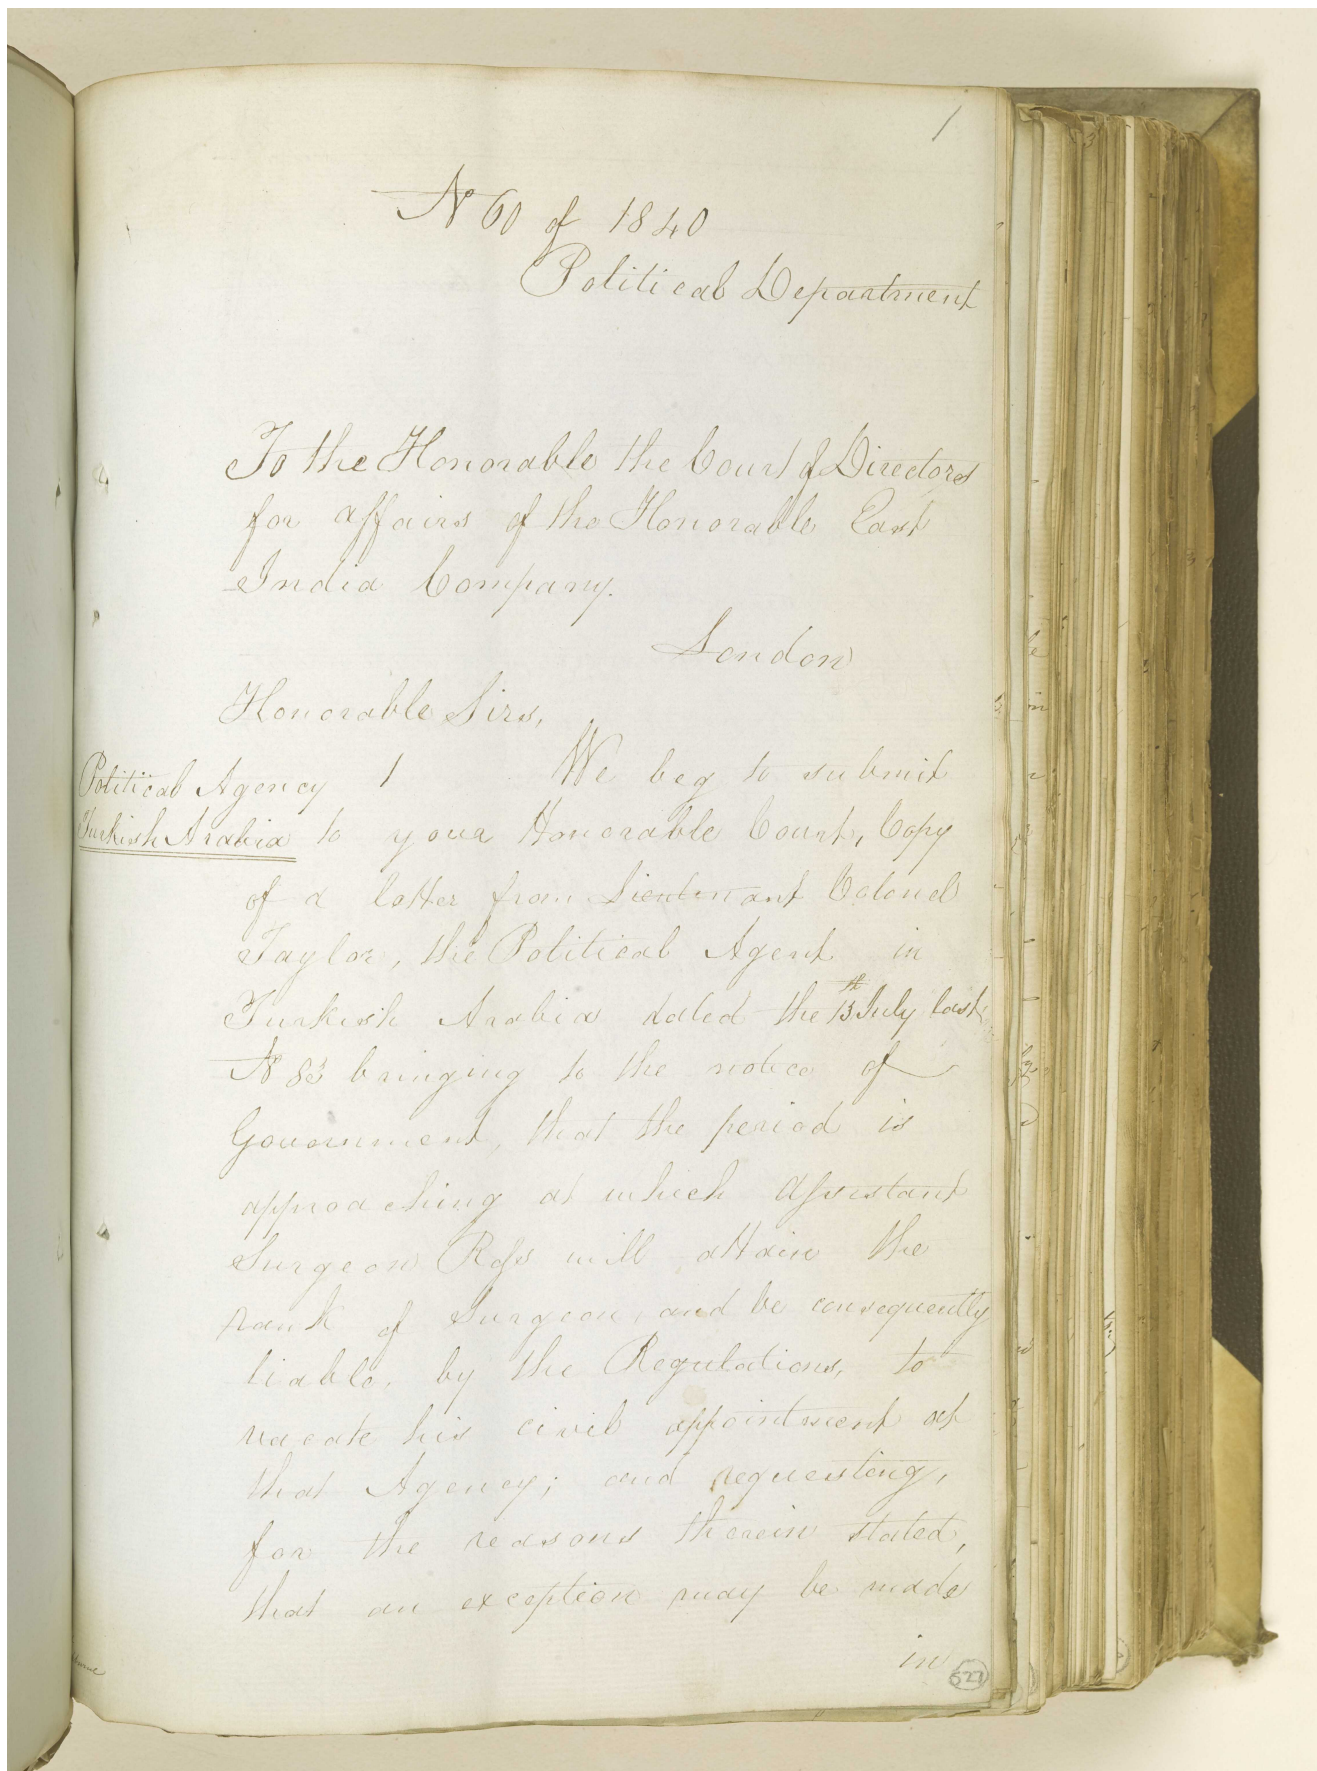 1
No 60 of 1840
Political Department
To the Honorable the Court of Directors
for affairs of the Honorable East
India Company.
London
Honorable Sirs,
Political Agency
Turkish Arabia
1 We beg to submit
to your Honorable Court, Copy
of a letter from Lieutenant Colonel
Taylor, the Political Agent in
Turkish Arabia dated the 13th July last
No 83 bringing to the notice of
Government, that the period is
approaching at which Assistant
Surgeon Ross will attain the
rank of Surgeon, and be consequently
liable, by the Regulations, to
vacate his civil appointment at
that Agency; and requesting,
for the reasons therein stated,
that an exception may be made
in
527